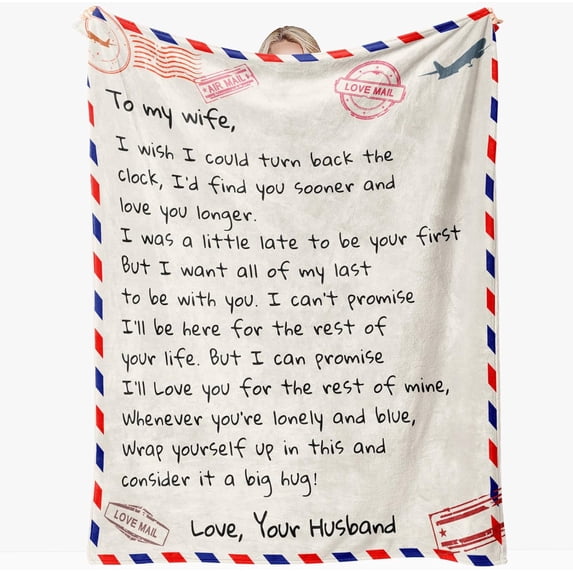 AIR MAIL
LOVE MAIL
To my wife,
I wish I could turn back the
clock, I'd find you sooner and
love you longer.
I was a little late to be your first
But I want all of my last
to be with you. I can't promise
I'll be here for the rest of
your life. But I can promise
I'll Love you for the rest of mine,
Whenever you're lonely and blue,
Wrap yourself up in this and
consider it a big hug!
LOVE MAIL
Love, Your Husband